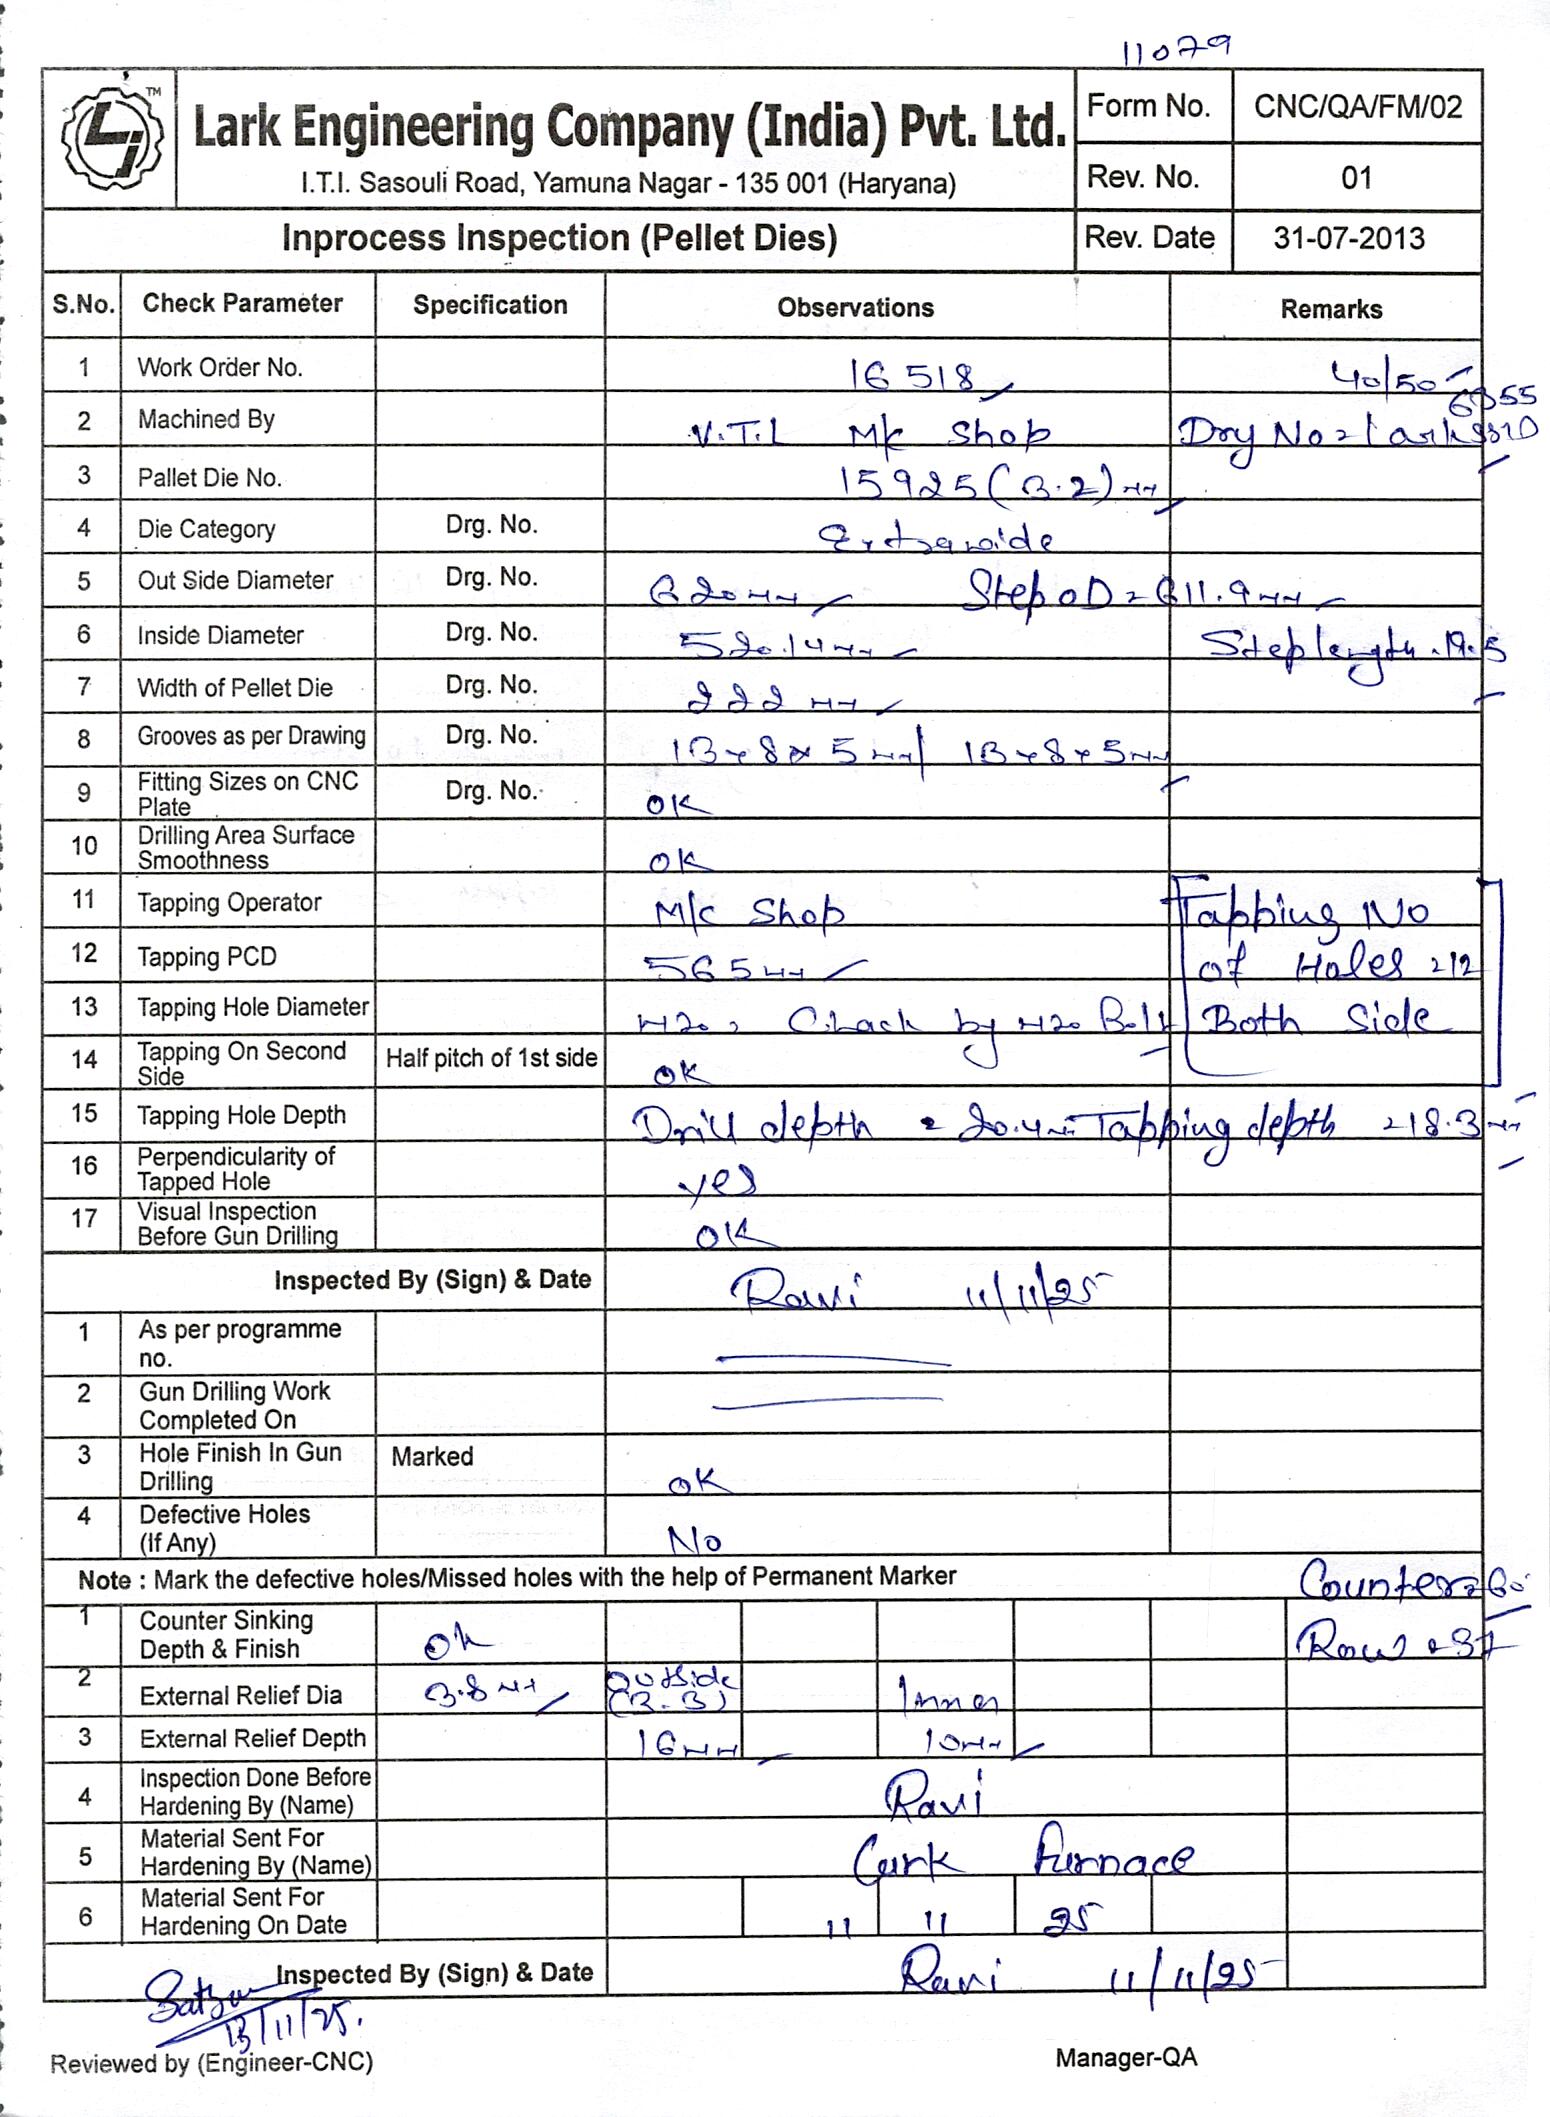 11079
TM
Lark Engineering Company (India) Pvt. Ltd.
I.T.I. Sasouli Road, Yamuna Nagar - 135 001 (Haryana)
Form No. CNC/QA/FM/02
Rev. No. 01
Inprocess Inspection (Pellet Dies) Rev. Date 31-07-2013
S.No. Check Parameter Specification Observations Remarks
1 Work Order No. 16518 40/50
2 Machined By V.T.L M/c Shop Dry No =
3 Pallet Die No. 15925 (3.2) mm
4 Die Category Drg. No. Extrawide
5 Out Side Diameter Drg. No. 620mm Step OD = 611.9mm
6 Inside Diameter Drg. No. 520.14mm Step length = 19.5
7 Width of Pellet Die Drg. No. 222 mm
8 Grooves as per Drawing Drg. No. 13x8x5mm/ 13x8x5mm
9 Fitting Sizes on CNC Plate Drg. No. OK
10 Drilling Area Surface Smoothness OK
11 Tapping Operator M/c Shop Tapping No
12 Tapping PCD 565mm of Holes = 12
13 Tapping Hole Diameter M20, Chack by M20 Bolt Both Side
14 Tapping On Second Side Half pitch of 1st side OK
15 Tapping Hole Depth Drill depth = 20.4mm Tapping depth = 18.3mm
16 Perpendicularity of Tapped Hole yes
17 Visual Inspection Before Gun Drilling OK
Inspected By (Sign) & Date Ravi 11/11/25
1 As per programme no.
2 Gun Drilling Work Completed On
3 Hole Finish In Gun Drilling Marked OK
4 Defective Holes (If Any) No
Note : Mark the defective holes/Missed holes with the help of Permanent Marker Counter = 60°
1 Counter Sinking Depth & Finish Ok Row = 37
2 External Relief Dia 3.8mm Outside (3-3) Inner
3 External Relief Depth 16mm 10mm
4 Inspection Done Before Hardening By (Name) Ravi
5 Material Sent For Hardening By (Name) Furnace
6 Material Sent For Hardening On Date 11 11 25
Inspected By (Sign) & Date Ravi 11/11/25
13/11/25.
Reviewed by (Engineer-CNC) Manager-QA